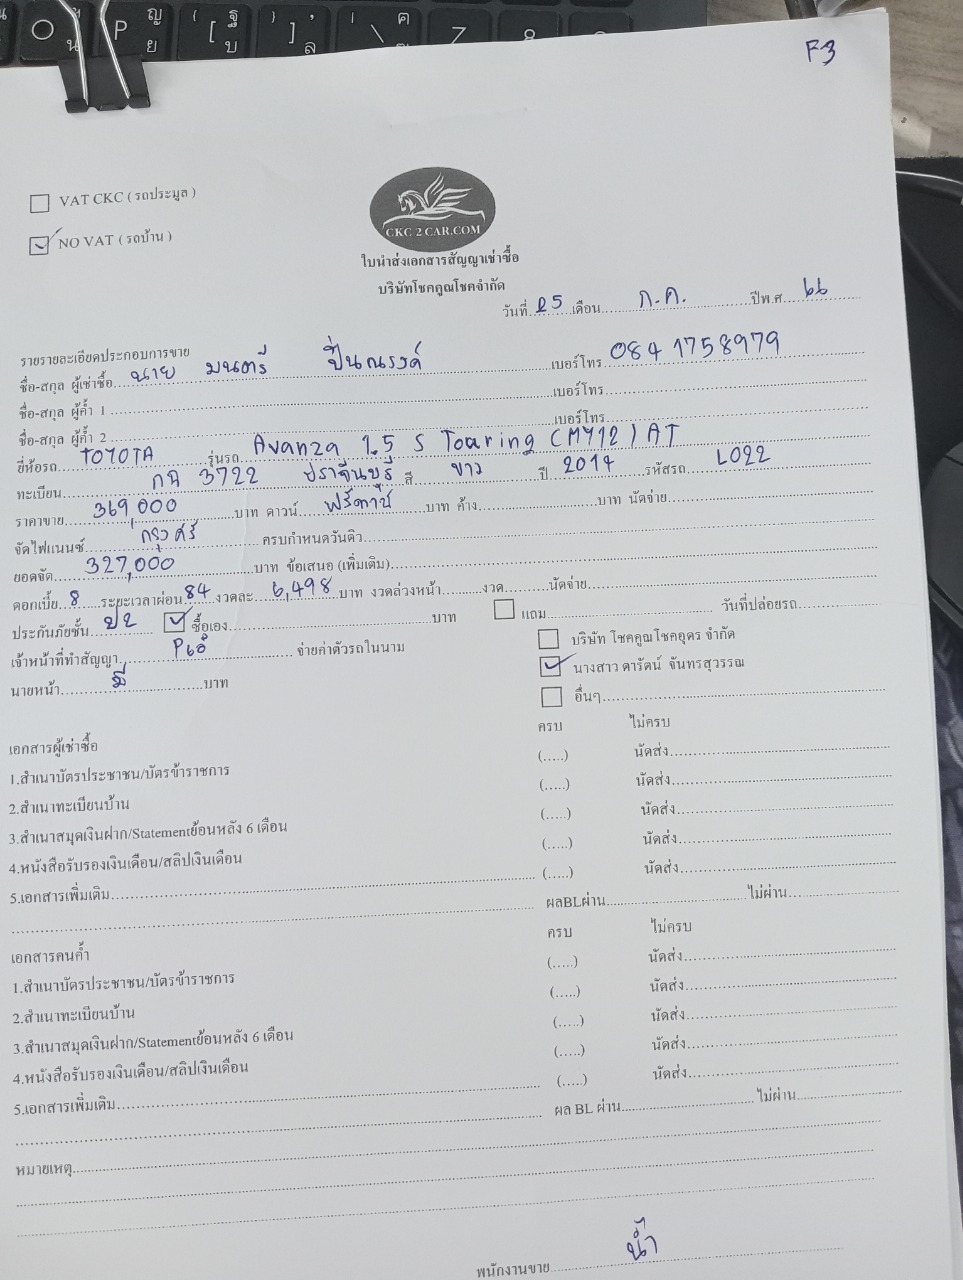 F3
VAT CKC ( รถประมูล )
NO VAT ( รถบ้าน )
CKC 2 CAR.COM
ใบนำส่งเอกสารสัญญาเช่าซื้อ
บริษัทโชคคูณโชคจำกัด
วันที่ 25 เดือน ก.ค. ปีพ.ศ. 66
รายรายละเอียดประกอบการขาย
ชื่อ-สกุล ผู้เช่าซื้อ นาย มนตรี ปิ่นณรงค์ เบอร์โทร 084 1758979
ชื่อ-สกุล ผู้ค้ำ 1 เบอร์โทร
ชื่อ-สกุล ผู้ค้ำ 2 เบอร์โทร
ยี่ห้อรถ TOYOTA รุ่นรถ Avanza 1.5 S Touring (MY12) AT
ทะเบียน 3722 ปราจีนบุรี สี ขาว ปี 2014 รหัสรถ L022
ราคาขาย 369,000 บาท ดาวน์ ฟรีดาวน์ บาท ค้าง บาท นัดจ่าย
จัดไฟแนนซ์ กรุงศรี ครบกำหนดวันดิว
ยอดจัด 327,000 บาท ข้อเสนอ (เพิ่มเติม)
ดอกเบี้ย 8 ระยะเวลาผ่อน 84 งวดละ 6,498 บาท งวดล่วงหน้า งวด นัดจ่าย
ประกันภัยชั้น ป2 ซื้อเอง บาท แถม วันที่ปล่อยรถ
เจ้าหน้าที่ทำสัญญา จ่ายค่าตัวรถในนาม บริษัท โชคคูณโชคอุดร จำกัด
นางสาว ดารัตน์ จันทรสุวรรณ
นายหน้า มี บาท อื่นๆ
เอกสารผู้เช่าซื้อ ครบ ไม่ครบ
1.สำเนาบัตรประชาชน/บัตรข้าราชการ (.....) นัดส่ง
2.สำเนาทะเบียนบ้าน (.....) นัดส่ง
3.สำเนาสมุดเงินฝาก/Statementย้อนหลัง 6 เดือน (.....) นัดส่ง
4.หนังสือรับรองเงินเดือน/สลิปเงินเดือน (.....) นัดส่ง
5.เอกสารเพิ่มเติม (.....) นัดส่ง
ผลBLผ่าน ไม่ผ่าน
เอกสารคนค้ำ ครบ ไม่ครบ
1.สำเนาบัตรประชาชน/บัตรข้าราชการ (.....) นัดส่ง
2.สำเนาทะเบียนบ้าน (.....) นัดส่ง
3.สำเนาสมุดเงินฝาก/Statementย้อนหลัง 6 เดือน (.....) นัดส่ง
4.หนังสือรับรองเงินเดือน/สลิปเงินเดือน (.....) นัดส่ง
5.เอกสารเพิ่มเติม (.....) นัดส่ง
ผล BL ผ่าน ไม่ผ่าน
หมายเหตุ
พนักงานขาย น้ำ